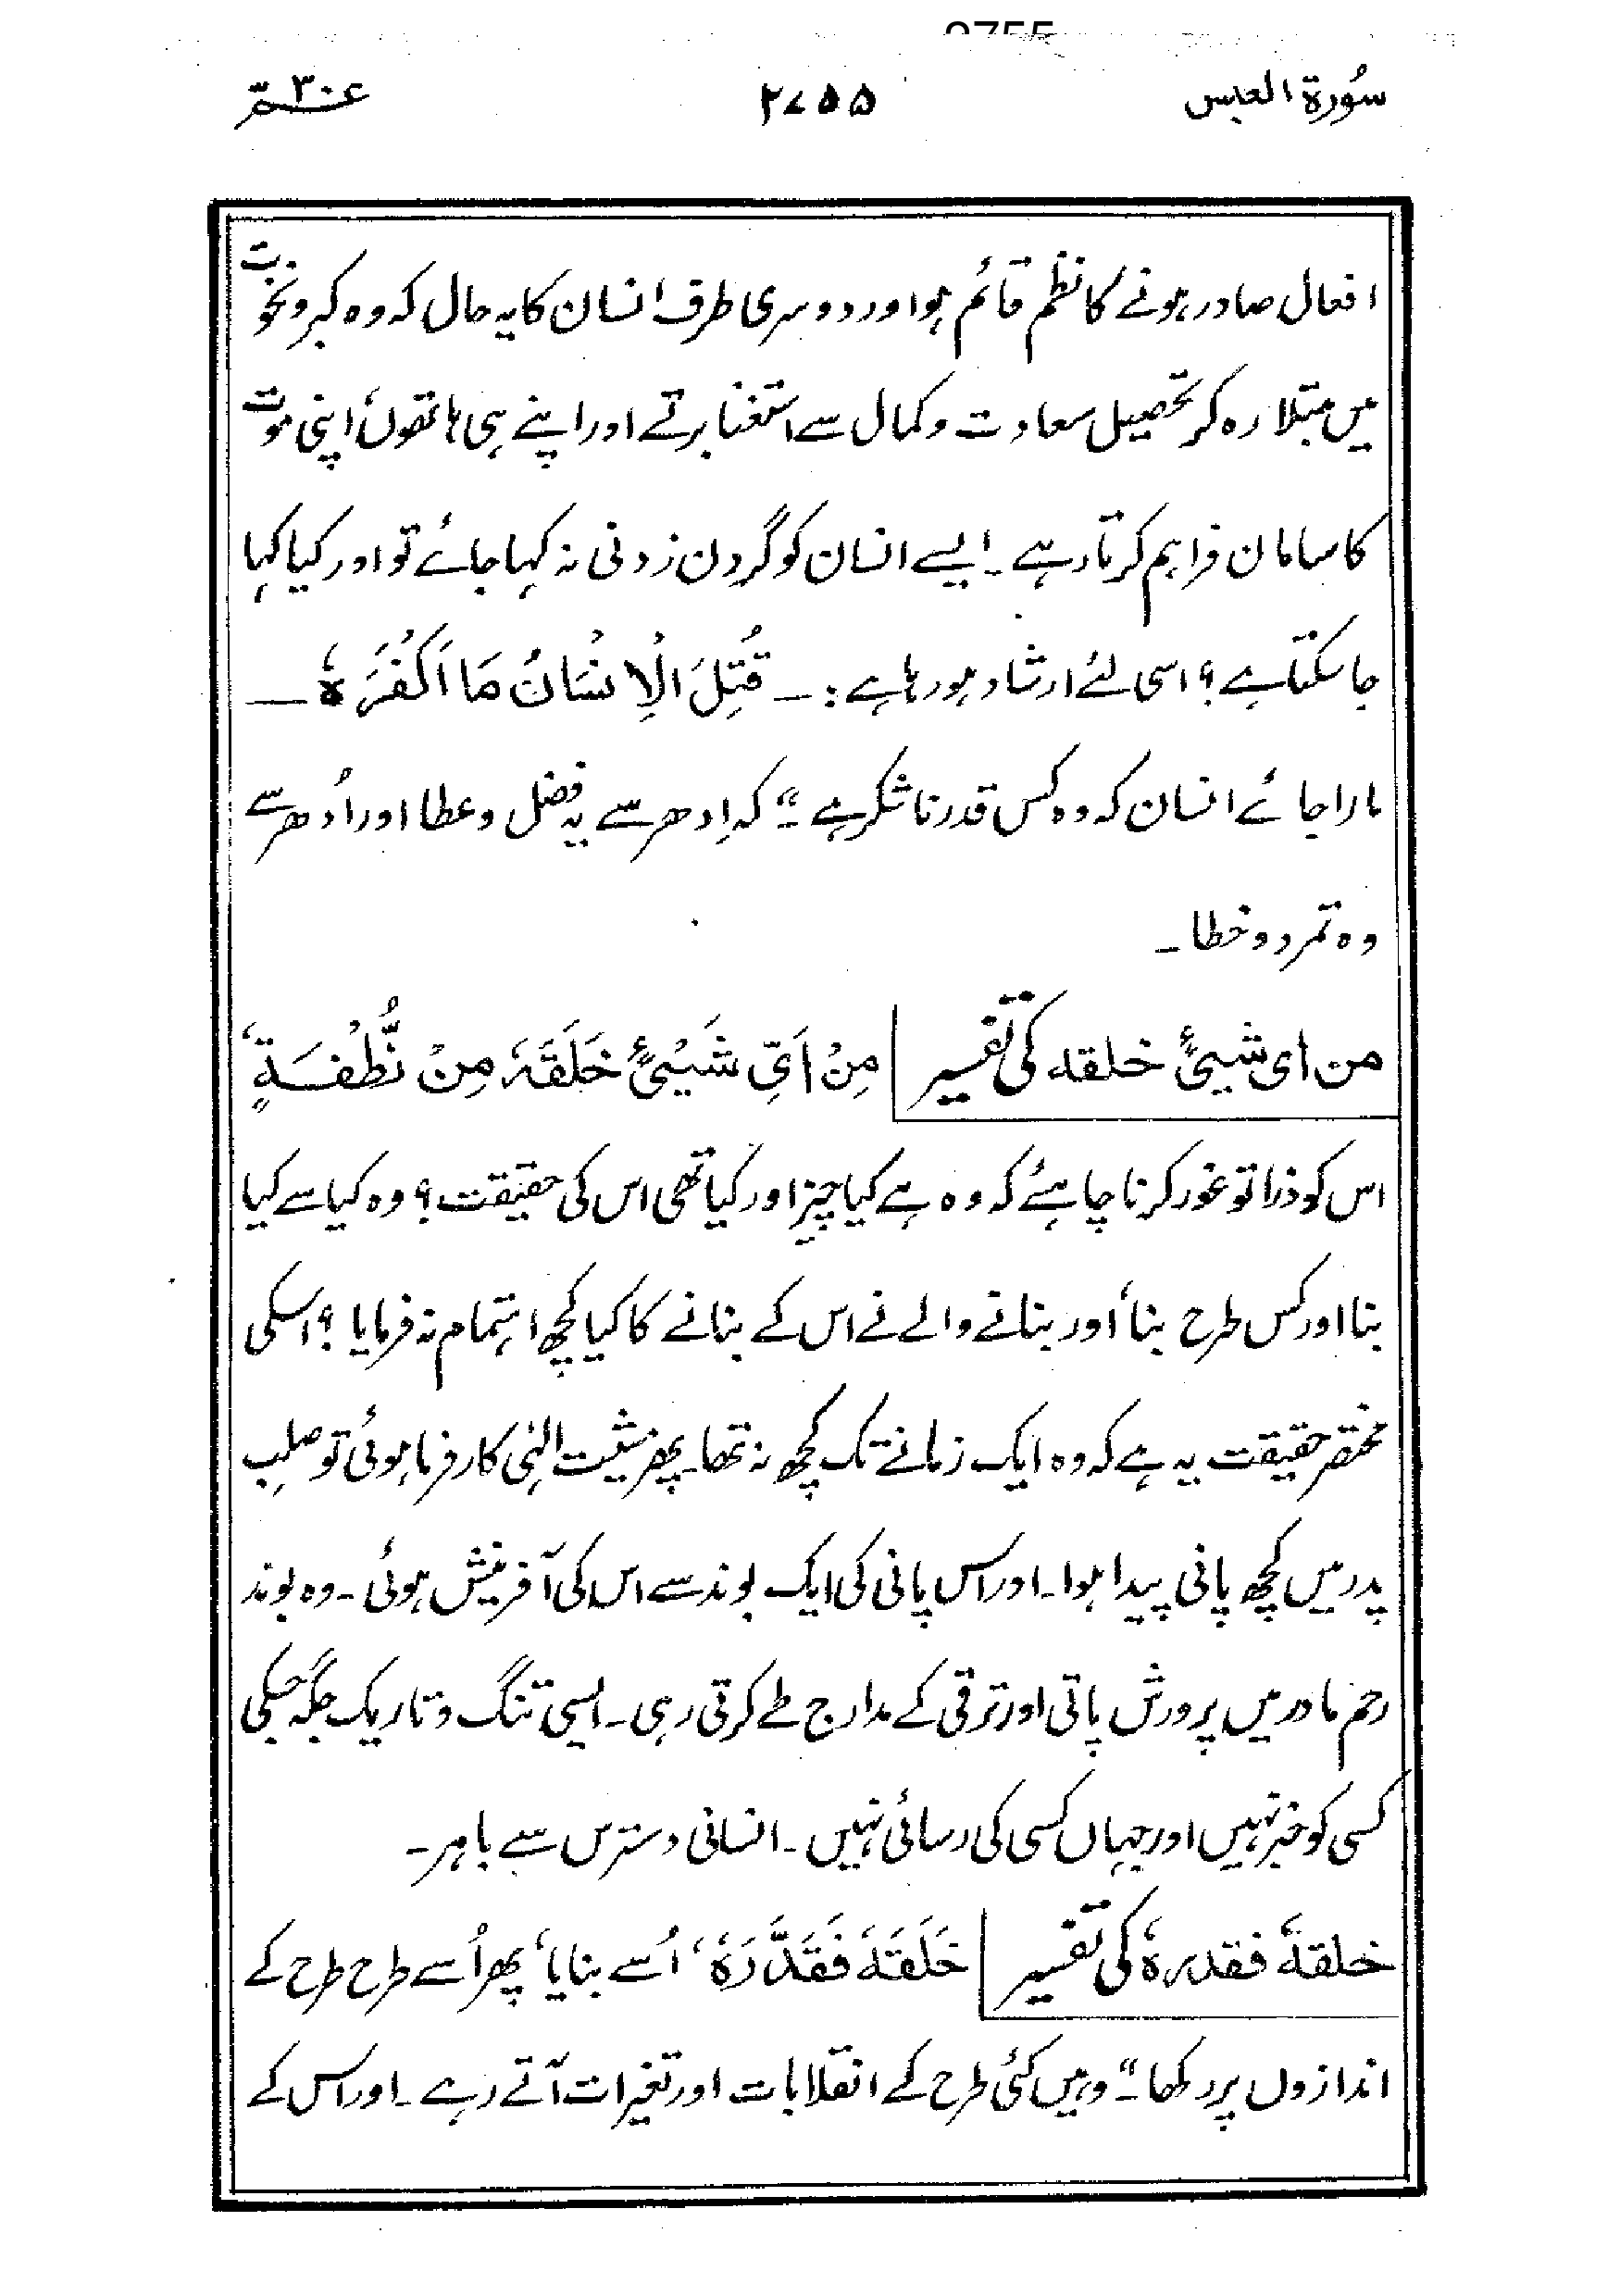 سُورۃ العبس ۲۷۵۵ عمّ ۳۰
افعال صادر ہونے کا نظم قائم ہو اور دوسری طرف انسان کا یہ حال کہ وہ کبر ونخوت
میں مبتلا رہ کر تحصیل سعادت وکمال سے استغنا برتے اور اپنے ہی ہاتھوں اپنی موت
کا سامان فراہم کرتا رہے ۔ ایسے انسان کو گردن زدنی نہ کہا جائے تو اور کیا کہا
جا سکتا ہے ؟ اسی لئے ارشاد ہو رہا ہے :۔ قُتِلَ الْاِنْسَانُ مَا اَكْفُرَہٗ ۔
مارا جائے انسان کہ وہ کس قدر ناشکر ہے ۔“ کہ اِدھر سے یہ فضل وعطا اور اُدھر سے
وہ تمرد وخطا ۔
من ای شییٔ خلقه کی تفسیر مِنْ اَیِّ شَیْیٍٔ خَلَقَہٗ مِنْ نُّطْفَةٍ ،
اس کو ذرا تو غور کرنا چاہئے کہ وہ ہے کیا چیز اور کیا تھی اس کی حقیقت ؟ وہ کیا سے کیا
بنا اور کس طرح بنا ، اور بنانے والے نے اس کے بنانے کا کیا کچھ اہتمام نہ فرمایا ؟ اسکی
مختصر حقیقت یہ ہے کہ وہ ایک زمانے تک کچھ نہ تھا ۔ پھر مشیت الہٰی کار فرما ہوئی تو صلبِ
پدر میں کچھ پانی پیدا ہوا ۔ اور اس پانی کی ایک بوند سے اس کی آفرینش ہوئی ۔ وہ بوند
رحم مادر میں پرورش پاتی اور ترقی کے مدارج طے کرتی رہی ۔ ایسی تنگ وتاریک جگہ جسکی
کسی کو خبر نہیں اور جہاں کسی کی رسائی نہیں ۔ انسانی دسترس سے باہر ۔
خلقهٗ فقدرہٗ کی تفسیر خَلَقَهٗ فَقَدَّرَہٗ ، اُسے بنایا ، پھر اُسے طرح طرح کے
اندازوں پر رکھا ۔“ وہیں کئی طرح کے انقلابات اور تغیرات آتے رہے ۔ اور اس کے